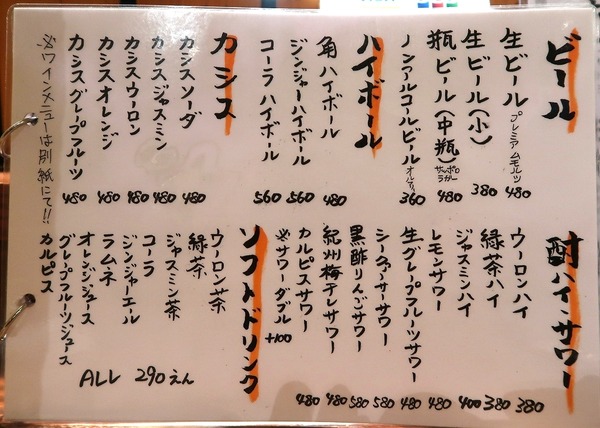 ビール
生ビール プレミアムモルツ 480
生ビール(小) 380
瓶ビール(中瓶) サッポロラガー 480
ノンアルコールビール オールフリー 360
ハイボール
角ハイボール 480
ジンジャーハイボール 560
コーラハイボール 560
カシス
カシスソーダ 480
カシスジャスミン 480
カシスウーロン 480
カシスオレンジ 480
カシスグレープフルーツ 480
※ワインメニューは別紙にて!!
酎ハイ・サワー
ウーロンハイ 380
緑茶ハイ 380
ジャスミンハイ 400
レモンサワー 480
生グレープフルーツサワー 480
シークァーサーサワー 580
黒酢りんごサワー 580
紀州梅干しサワー 480
カルピスサワー 480
※サワーダブル +100
ソフトドリンク
ウーロン茶
緑茶
ジャスミン茶
コーラ
ジンジャーエール
ラムネ
オレンジジュース
グレープフルーツジュース
カルピス
ALL 290えん